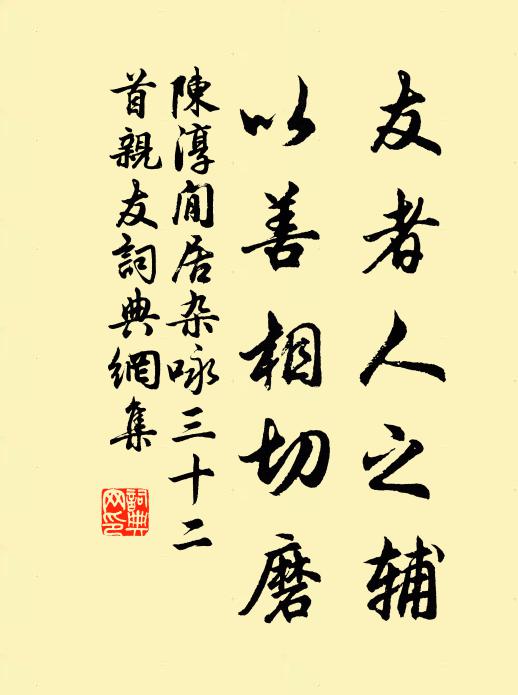 友者人之辅
以善相切磨
陳淳閒居杂咏三十二
首親友詞典網集
詞典
网印